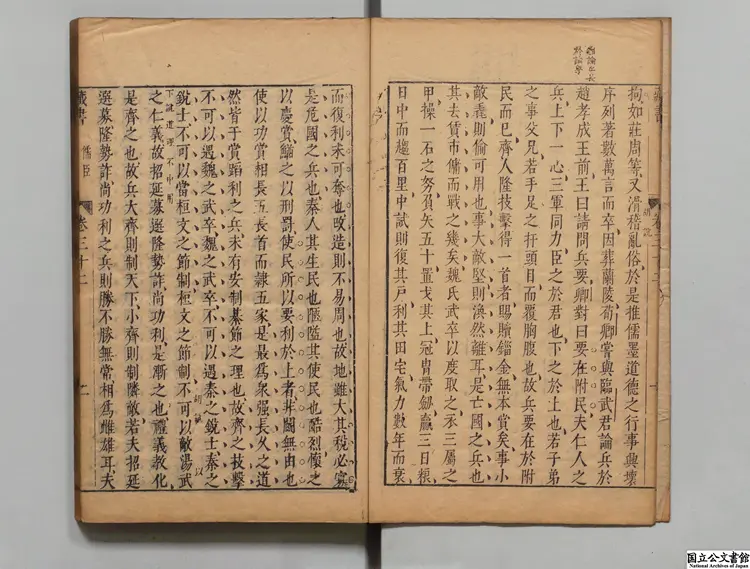 拘如莊周等又滑稽亂俗於是推儒墨道德之行事興壞
序列著數萬言而卒因葬蘭陵荀卿嘗與臨武君論兵於
趙孝成王前王曰請問兵要卿對曰要在附民夫仁人之
兵上下一心三軍同力臣之於君也下之於上也若子弟
之事父兄若手足之扞頭目而覆胸腹也故兵要在於附
民而已齊人隆技擊得一首者賜贖錙金無本賞矣事小
敵毳則偷可用也事大敵堅則渙然離耳是亡國之兵也
其去賃市傭而戰之幾矣魏氏武卒以度取之衣三屬之
甲操一石之弩負矢五十置戈其上冠冑帶劔贏三日糧
日中而趨百里中試則復其戶利其田宅氣力數年而衰
而復利未可奪也改造則不易周也故地雖大其稅必寡
是危國之兵也秦人其生民也陿隘其使民也酷烈懷之
以慶賞鰌之以刑罰使民所以要利於上者非鬬無由也
使以功賞相長五長首而隸五家是最爲衆强長久之道
然皆于賞蹈利之兵未有安制綦節之理也故齊之技擊
不可以遇魏之武卒魏之武卒不可以遇秦之銳士秦之
銳士不可以當桓文之節制桓文之節制不可以敵湯武
之仁義故招延募選隆勢詐尚功利是漸之也禮義教化
是齊之也故兵大齊則制天下小齊則制隣敵若夫招延
選募隆勢詐尚功利之兵則勝不勝無常相爲雌雄耳夫
藏書
儒臣
卷三十二
二
国立公文書館
National Archives of Japan